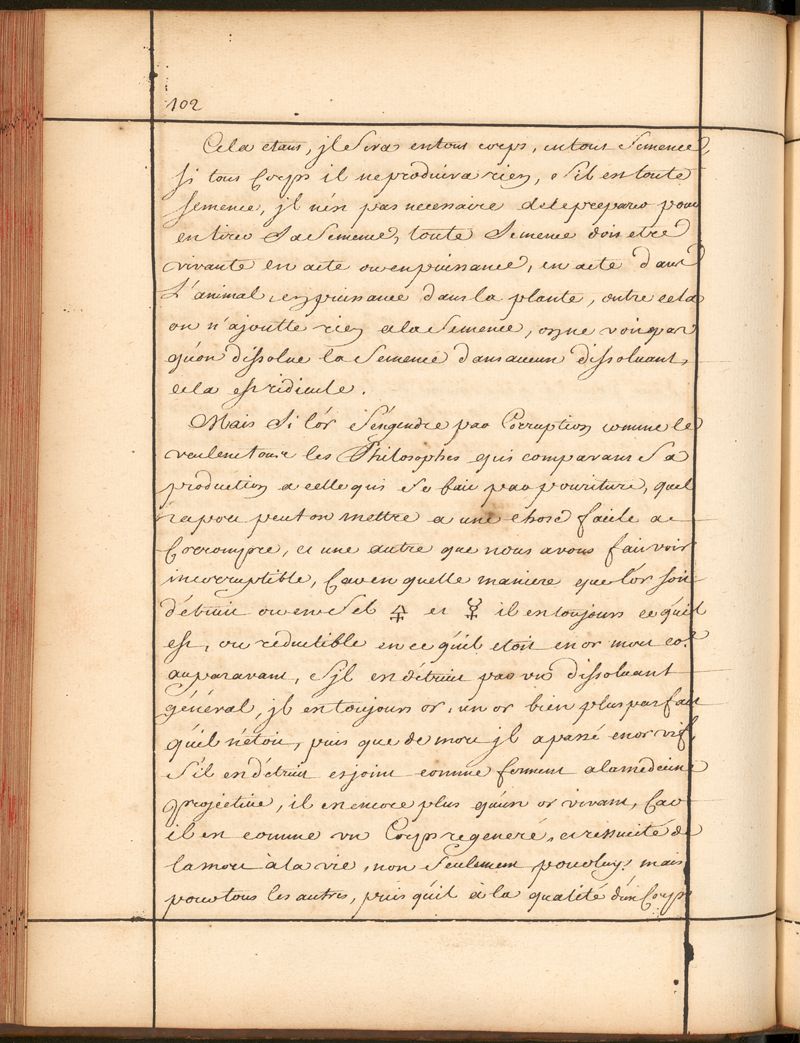 102
Cela etant, jl sera entout corps, entout semence,
si tous Corps il neproduira rien, s'il entoute
semence, jl n'est pas necessaire dele preparer pour
entirer sa semence, toute semence doit etre
vivante en acte ou enpuissance, en acte dans
L'animal, enpuissance dans la plante, outre cela
on n'ajoutte rien ala semence, onne voit pas
qu'on dissolve la semence dans aucun dissolvant,
cela est ridicule.
Mais si l'or s'engendre par Corruption comme le
veulent tous les Philosophes qui comparant sa
production a celle qui se fait par pouriture, quel
rapou peut on mettre a une chose facile a
Corrompre, et une autre que nous avons fait voir
incorruptible, Car en quelle maniere que l'or soit
détruit ou en sel 🜍 et ☿ il est toujours ce qu'il
est, ou reductible en ce qu'il etoit en or mort co.e
auparavant, s'jl est détruit par un dissolvant
général, jl est toujours or, un or bien plus parfait
qu'il n'etoit, puis que de mort jl a passé en or vif,
s'il est détruit et joint comme ferment a la médecine
projective, il est encore plus qu'un or vivant, Car
il est comme un Corps regeneré, et ressucité de
la mort à la vie, non seulement pour luy: mais
pour tous les autres, puis qu'il à la qualité d'un Corps